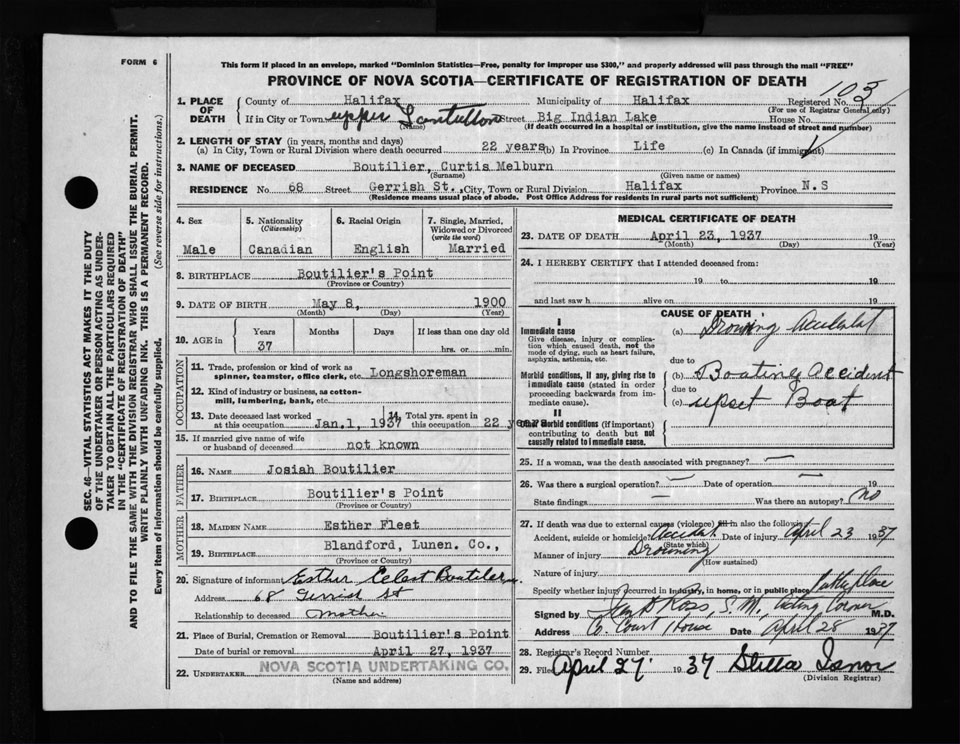 FORM 6
This form if placed in an envelope, marked "Dominion Statistics—Free, penalty for improper use $300," and properly addressed will pass through the mail "FREE"
PROVINCE OF NOVA SCOTIA—CERTIFICATE OF REGISTRATION OF DEATH
SEC. 46—VITAL STATISTICS ACT MAKES IT THE DUTY
OF THE UNDERTAKER OR PERSON ACTING AS UNDER-
TAKER TO OBTAIN ALL THE PARTICULARS REQUIRED
IN THE "CERTIFICATE OF REGISTRATION OF DEATH"
AND TO FILE THE SAME WITH THE DIVISION REGISTRAR WHO SHALL ISSUE THE BURIAL PERMIT.
WRITE PLAINLY WITH UNFADING INK. THIS IS A PERMANENT RECORD.
Every item of information should be carefully supplied. (See reverse side for instructions.)
1. PLACE OF DEATH
County of Halifax Municipality of Halifax Registered No. 103
(For use of Registrar General only)
If in City or Town upper Street Big Indian Lake House No.
(Name) (If death occurred in a hospital or institution, give the name instead of street and number)
2. LENGTH OF STAY (in years, months and days)
(a) In City, Town or Rural Division where death occurred 22 years (b) In Province Life (c) In Canada (if immigrant)
3. NAME OF DECEASED Boutilier, Curtis Melburn
(Surname) (Given name or names)
RESIDENCE No. 68 Street Gerrish St., City, Town or Rural Division Halifax Province N.S
(Residence means usual place of abode. Post Office Address for residents in rural parts not sufficient)
4. Sex
Male
5. Nationality
(Citizenship)
Canadian
6. Racial Origin
English
7. Single, Married,
Widowed or Divorced
(write the word)
Married
8. BIRTHPLACE Boutilier's Point
(Province or Country)
9. DATE OF BIRTH May 8, 1900
(Month) (Day) (Year)
10. AGE in Years Months Days If less than one day old
37 hrs. or min.
OCCUPATION
11. Trade, profession or kind of work as
spinner, teamster, office clerk, etc. Longshoreman
12. Kind of industry or business, as cotton-
mill, lumbering, bank, etc.
13. Date deceased last worked
at this occupation Jan, 1, 1937
14. Total yrs. spent in
this occupation 22 years
15. If married give name of wife
or husband of deceased not known
FATHER
16. NAME Josiah Boutilier
17. BIRTHPLACE Boutilier's Point
(Province or Country)
MOTHER
18. MAIDEN NAME Esther Fleet
19. BIRTHPLACE Blandford, Lunen. Co.,
(Province or Country)
20. Signature of informant Esther Boutilier
Address 68 Gerrish St
Relationship to deceased Mother
21. Place of Burial, Cremation or Removal Boutilier's Point
Date of burial or removal April 27, 1937
22. UNDERTAKER NOVA SCOTIA UNDERTAKING CO.
(Name and address)
MEDICAL CERTIFICATE OF DEATH
23. DATE OF DEATH April 23, 1937 19
(Month) (Day) (Year)
24. I HEREBY CERTIFY that I attended deceased from:
19 to 19
and last saw h alive on 19
CAUSE OF DEATH
I
Immediate cause
Give disease, injury or complica-
tion which caused death, not the
mode of dying, such as heart failure,
asphyxia, asthenia, etc.
(a) Drowning Accident
due to
Morbid conditions, if any, giving rise to
immediate cause (stated in order
proceeding backwards from im-
mediate cause).
(b) Boating accident
due to
(c) upset Boat
II
Other Morbid conditions (if important)
contributing to death but not
causally related to immediate cause.
25. If a woman, was the death associated with pregnancy? —
26. Was there a surgical operation? — Date of operation — 19
State findings — Was there an autopsy? no
27. If death was due to external causes (violence) fill in also the following:
Accident, suicide or homicide? Accident Date of injury April 23 1937
(State which)
Manner of injury Drowning
(How sustained)
Nature of injury
Specify whether injury occurred in industry, in home, or in public place Public place
Signed by Ross, S.M, Acting Coroner M.D.
Address Co. Court House Date April 28 1937
28. Registrar's Record Number
29. Filed April 27. 1937 Stella
(Division Registrar)